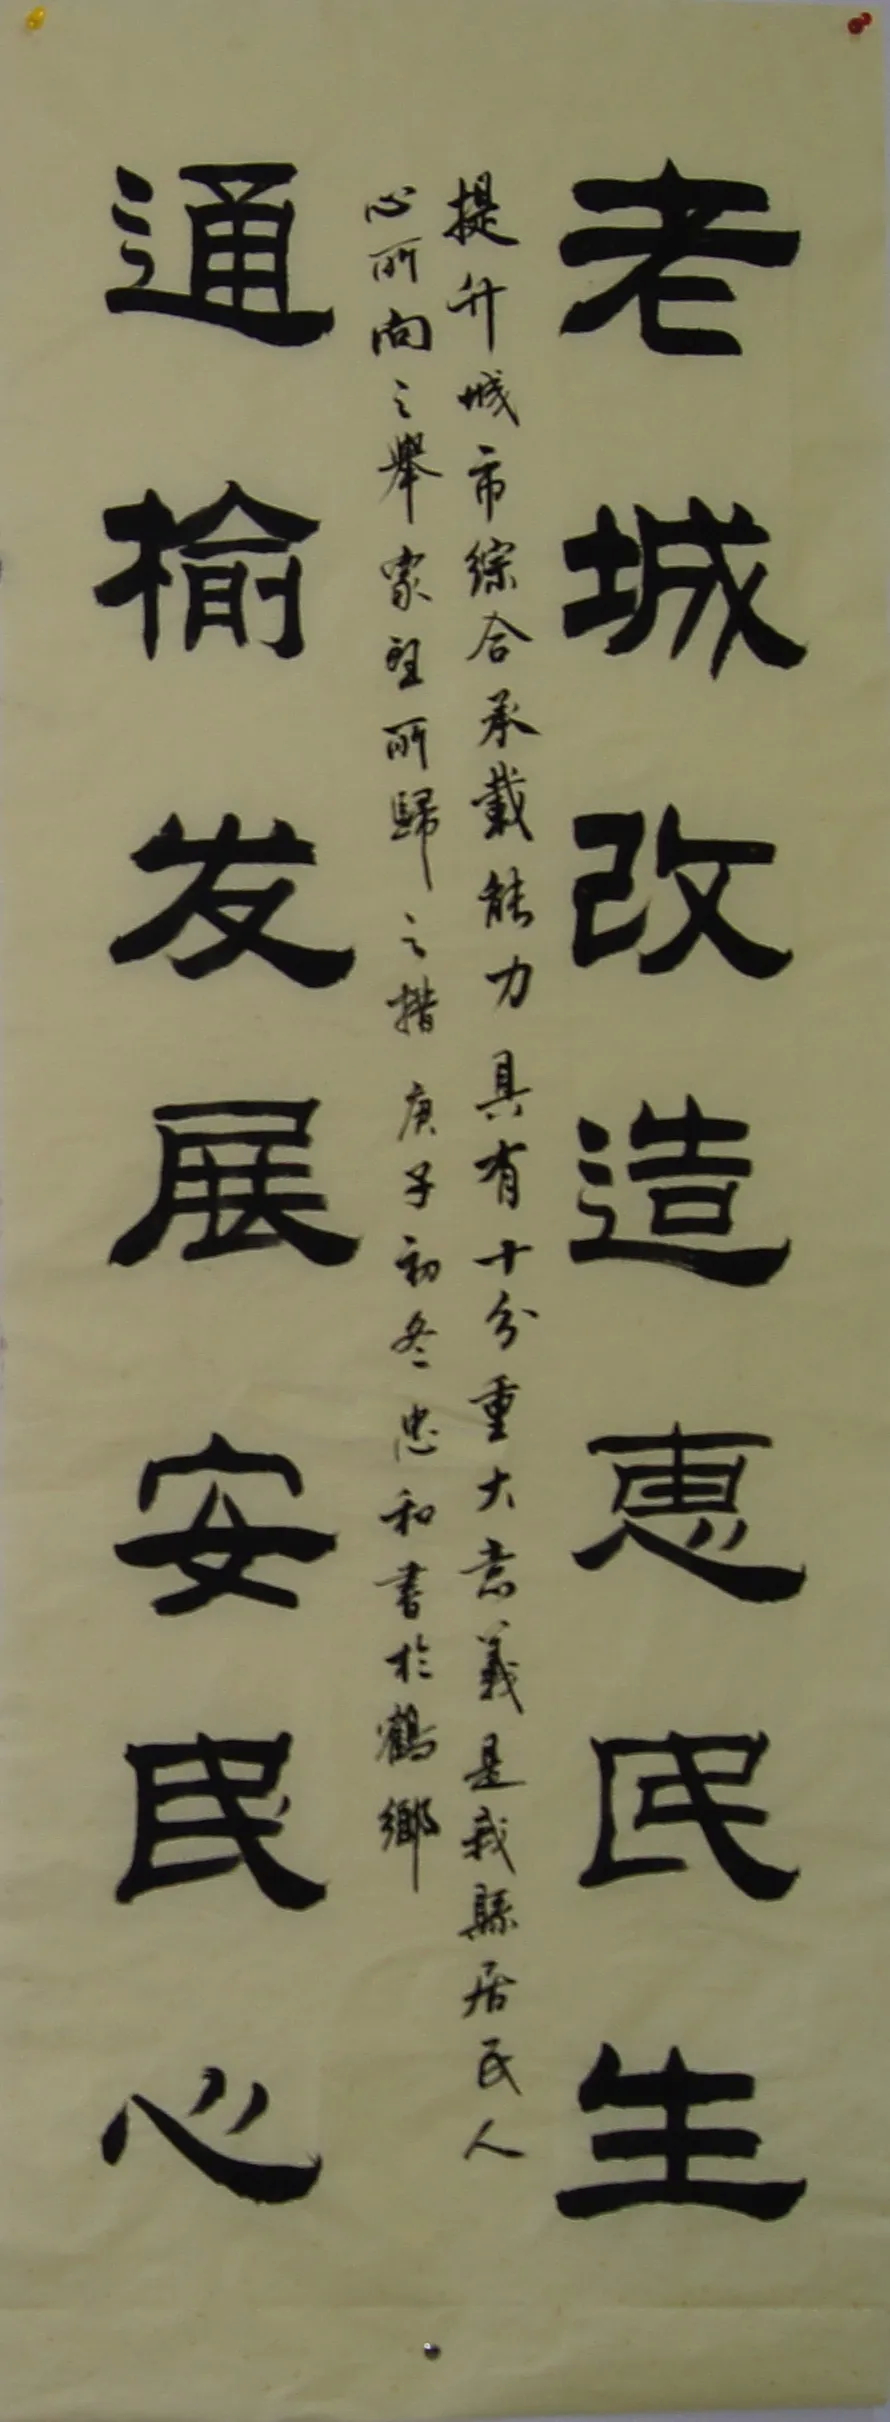 老城改造惠民生
提升城市綜合承載能力具有十分重大意義是我縣居民人
心所向之舉家望所歸之措庚子初冬忠和書於鶴鄉
通榆发展安民心